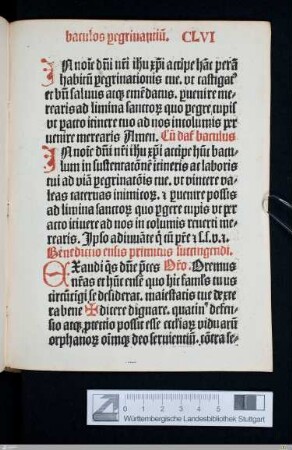 baculos pegrinantiū. CLVI
IN noīe dn̄i nr̄i ihu xp̄i accipe hāc perā
habitū pegrinationis tue. vt castigat9
et bn̄ saluus atq; emēdatus. puenire me-
rearis ad limina sanctorꝝ quo pegre cupis
vt pacto itinere tuo ad nos incolumis re-
uenire merearis Amen. Cū daſ baculus
IN noīe dn̄i nr̄i ihu xp̄i accipe hūc bacu
lum in sustentatōnē itineris ac laboris
tui ad viā pegrinatōis tue. vt vincere va
leas cateruas inimicoꝝ. ⁊ puenire possis
ad limina sanctoꝝ quo pgere cupis vt per
acto itinere ad nos in columis reuerti me
rearis. Ipso adiuuāte q̄ cū pr̄e ⁊ s.s.v.⁊.
Benedictio ensis primitus succingendi.
EXaudi qs dn̄e p̄ces Oro. Oremus
nr̄as et hūc ense quo hic famls tuus
circūcigi se desiderat. maiestatis tue dexte
ra bene ✠ dicere dignare. quatin9 defen-
sio atq; ptectio possit esse ecclīaꝝ viduarū
orphanorꝫ oīmq; deo seruientiū. cōtra se-
0 1 2 3 4 5
Württembergische Landesbibliothek Stuttgart